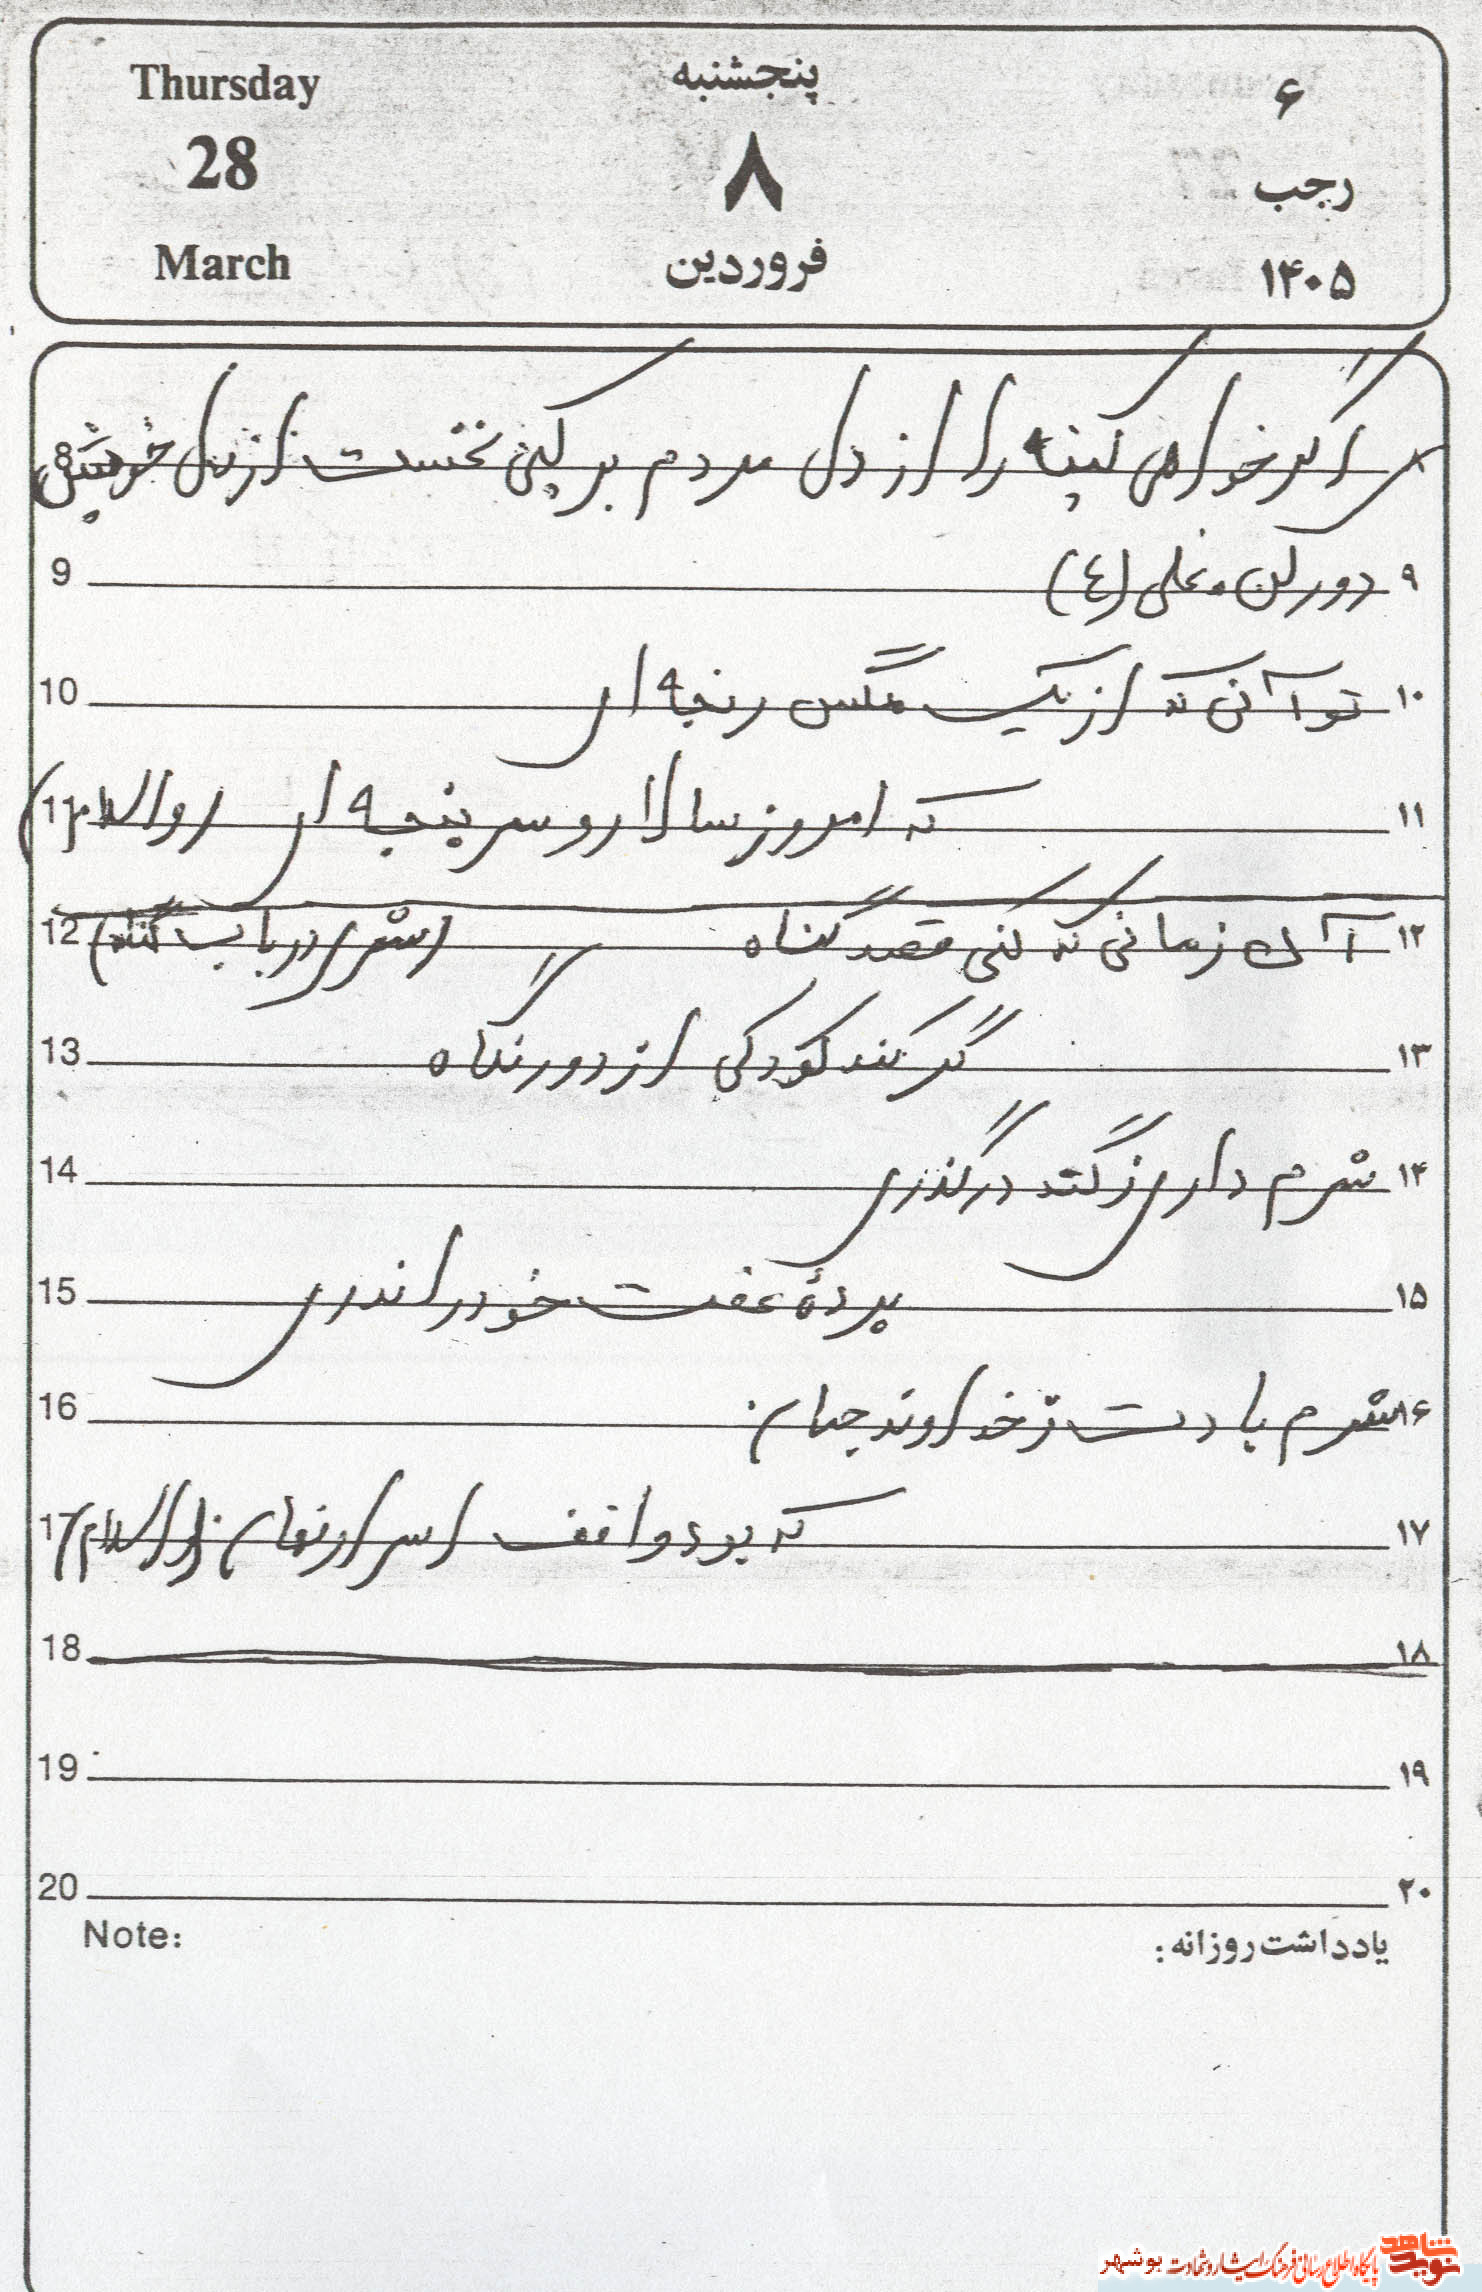 Thursday
28
March
پنجشنبه
۸
فروردین
۶
رجب
۱۴۰۵
۸ 8 اگر خواهی کینه را از دل مردم بر کنی نخست از دل خویش
۹ 9 دور کن. علی (ع)
۱۰ 10 تو آنی که از یک مگس رنجه ای
۱۱ 11 که امروز سالار و سر پنجه ای (والسلام)
۱۲ 12 آن زمانی که کنی قصد گناه (شعری در باب گناه)
۱۳ 13 گر کند کودکی از دور نگاه
۱۴ 14 شرم داری ز گنه در گذری
۱۵ 15 پردهٔ عفت خود را ندری
۱۶ 16 شرم بادت ز خداوند جهان
۱۷ 17 که بود واقف اسرار نهان (والسلام)
۱۸ 18
۱۹ 19
۲۰ 20
یادداشت روزانه : Note:
نوید شاهد پایگاه اطلاع رسانی فرهنگ ایثار و شهادت بوشهر